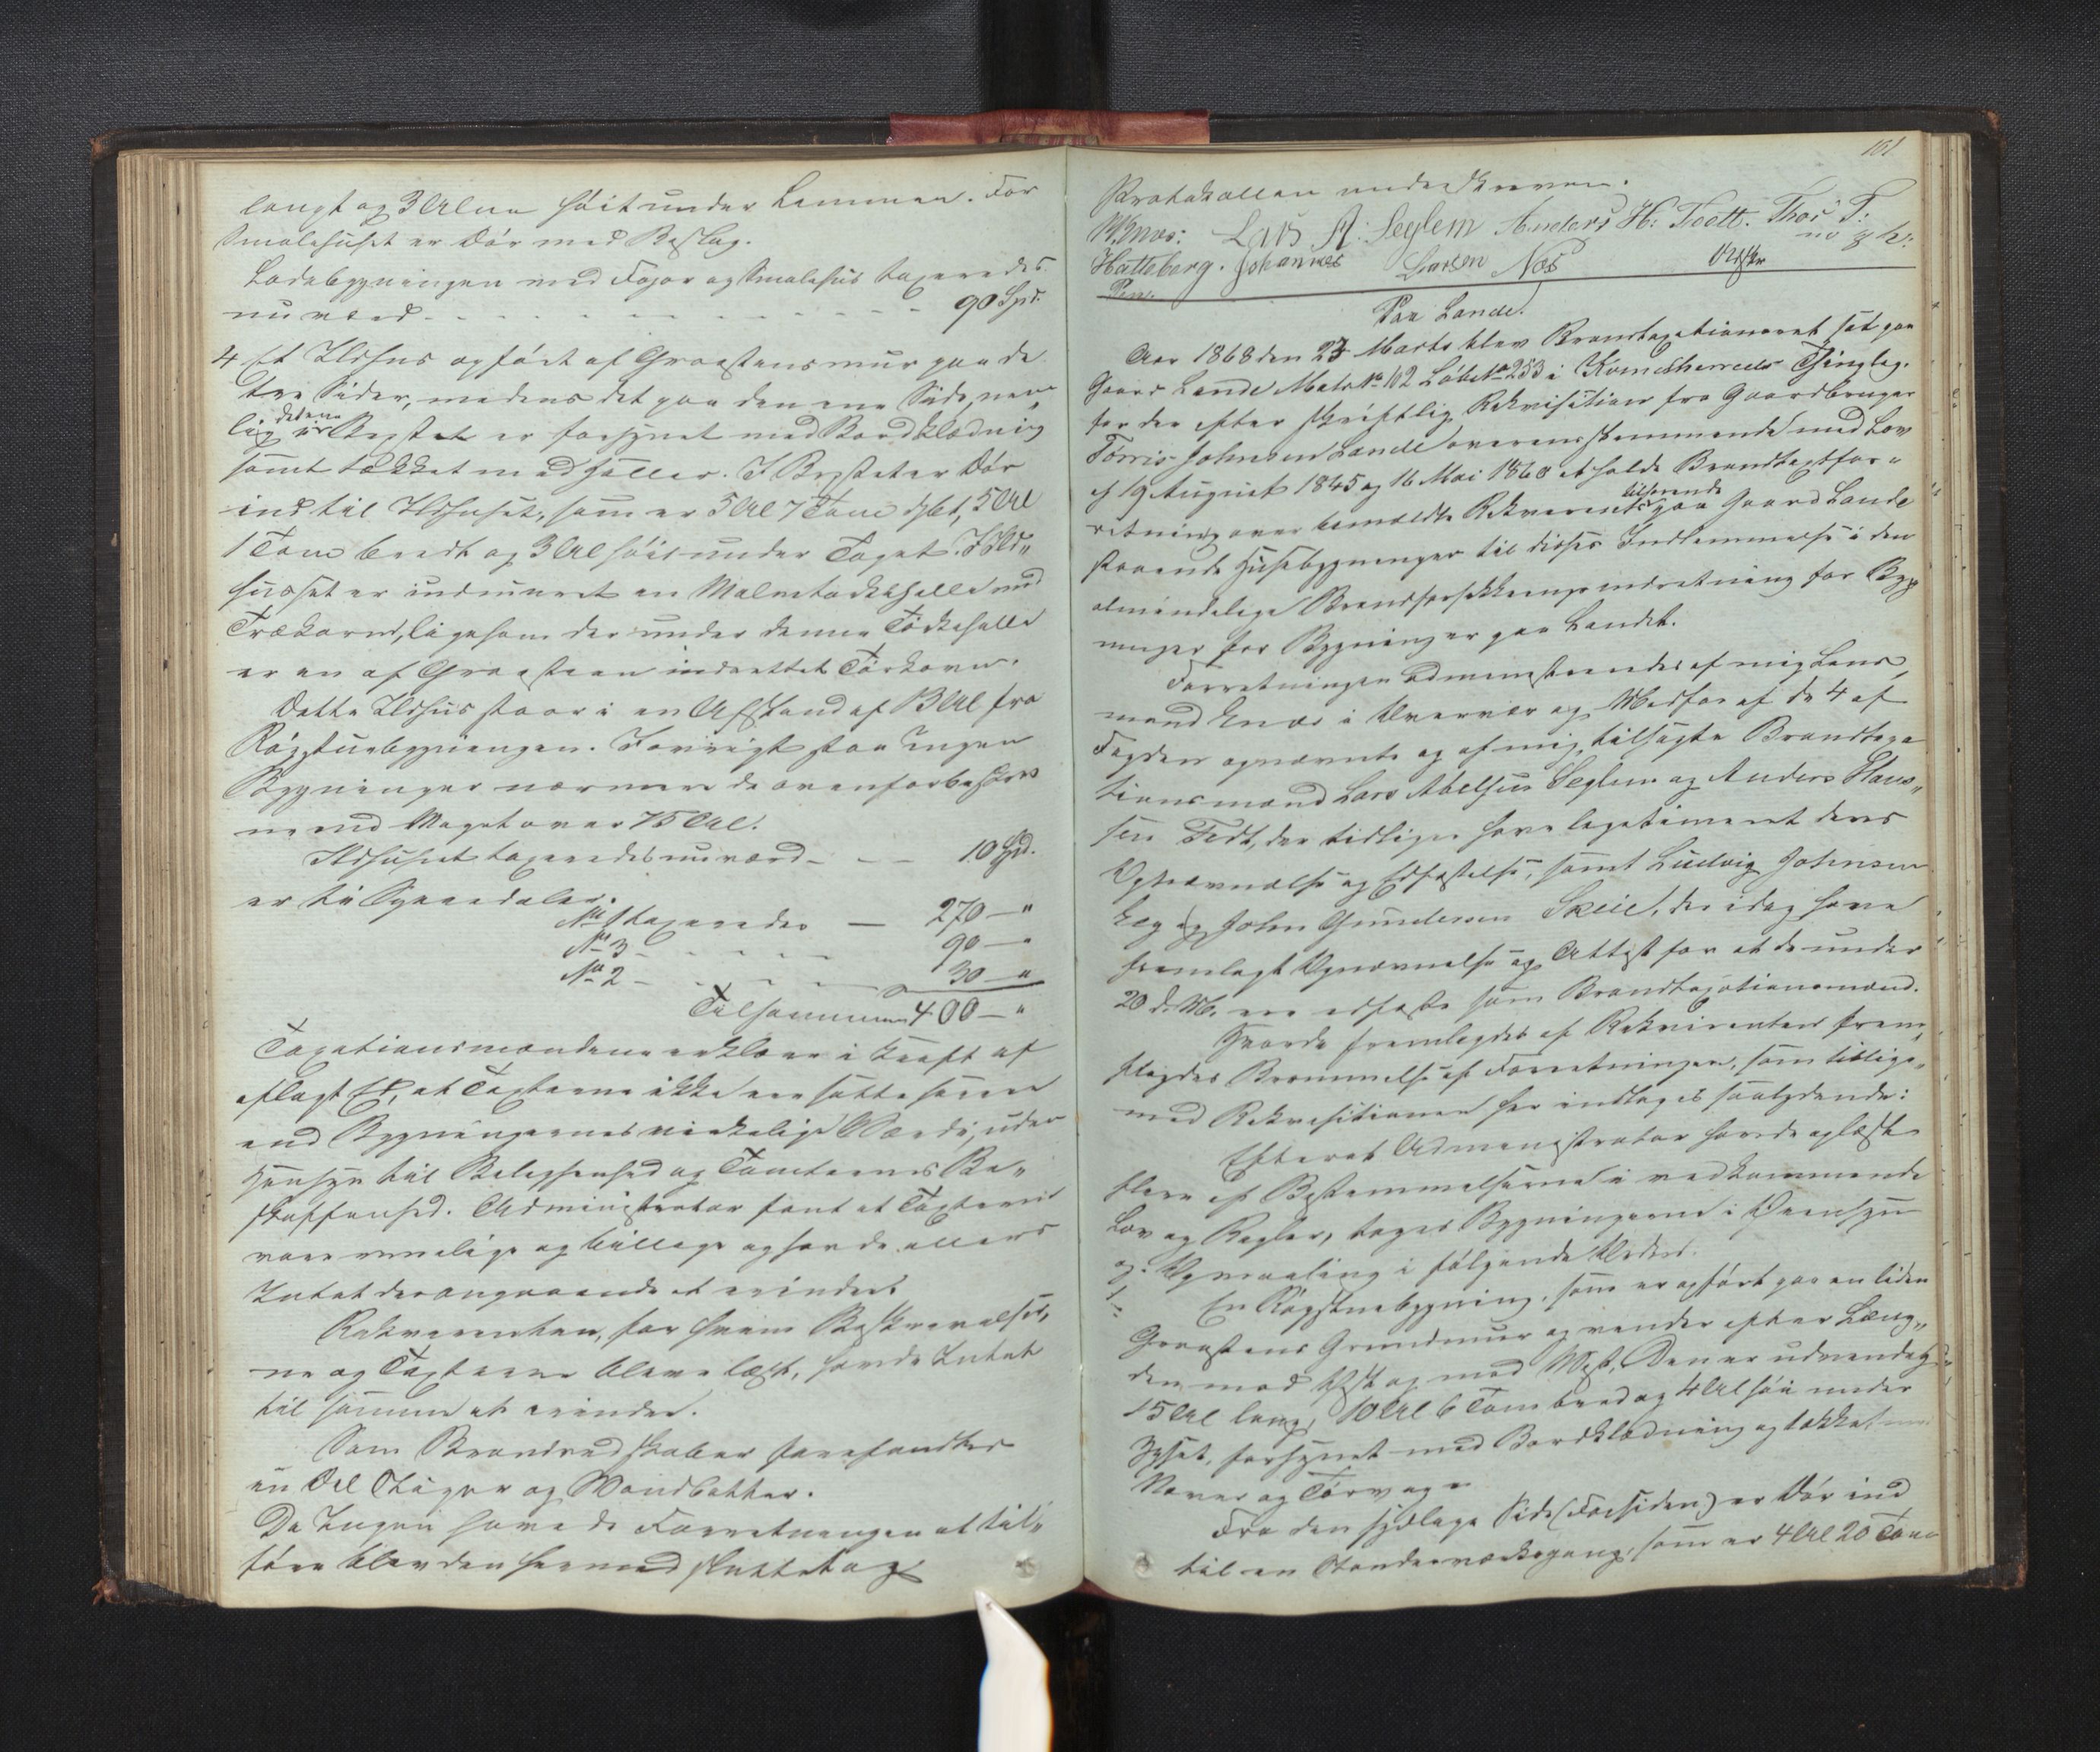 langt og 3 Alen höit under Lemmen. For
Smalehuset er Dör med Beslag.
Ladebygningen med Fojor og Smalehus taxeredes
nu værd - - - - - - - - 90 Spd.
4 Et Ildhus opfört af Graastensmur paa de
tre Sider, medens det paa den ene Side, nem„
lig Brystet er forsynet med Bordklædning
samt tækket med Heller. I Brystet er Dör
ind til Ildhuset, som er 5 Al 7 Tom dybt, 5 Al
1 Tom bredt og 3 Al höit under Taget. I Ild„
huset er indmuret en Malmtörkehelle med
Trækarm, ligesom der under denne Törkehelle
er en af Graasteen indrettet Törkeovn.
Dette Ildhus staar i en Afstand af 3 Al fra
Rögstuebygningen. Forövrigt staa Ingen
Bygninger nærmere de ovenforbeskrev
ne end Noget over 75 Al.
Ildhuset taxeredes nu værd - - - 10 Spd.
er ti Speciedaler.
No 1 taxeredes — 270 — "
No 3 - - - - - 90 — "
No 2 - - - - - 30 — "
Tilsammen 400 — "
Taxationsmændene erklære i Kraft af
aflagt Ed, at Taxterne ikke ere satte höiere
end Bygningernes virkelige Værdi, uden
Hensyn til Beleggenhed og Tomternes Be„
skaffenhed. Administrator fant at Taxterne
vare rimelige og billige og havde ellers
Intet derangaaende at erindre.
Rekvirenten, for hvem Beskrivelser„
ne og Taxterne bleve læst, havde Intet
til samme at erindre.
Som Brandredskaber forefandtes
en Del Stiger og Vandbötter.
Da Ingen havde Forretningen at til„
före blev den hermed sluttet og
101
Protokollen underskreven.
Knos: Lars A: Seglem Anders H: Toett. Thor T:
Hatteberg. Johannes Larsen Næs
Paa Lande.
Aar 1868 den 23 Marts blev Brandtaxationsret sat paa
Gaard Lande Matr No 112 Löbe No 253 i Kvindherreds Thinglag.
for der efter skriftlig Rekvisition fra Gaardbruger
Torris Johnsen Lande overensstemmende med Lov
af 19 August 1845 og 16 Mai 1860 at holde Brandtaxtfor„
retning over bemeldte Rekvirents tilhörende paa Gaard Lande
staaende Husebygninger til disses Indlemmelse i den
almindelige Brandforsikkringsindretning for Byg
ninger for Bygninger paa Landet.
Forretningen administreredes af mig Lens„
mand Knos i Overvær og Medfor af de 4 af
Fogden opnævnte og af mig tilsagte Brandtaxa
tionsmænd Lars Abelsen Seglem og Anders Han„
sen Tedt, der tidligere have legitimeret deres
Opnævnelse og Edfæstelse, samt Ludvig Johnsen
og John Gundersen Skeie, der idag have
fremlagt Opnævnelse og Attest for at de under
20 d. M. ere edfæste som Brandtaxationsmænd.
Hvorda fremlagdes af Rekvirenten frem„
lagdes Berammelse af Forretningen, som tillige„
med Rekvisitionen her indtages saalydende:
Efterat Administrator havde oplæst
flere af Bestemmelserne i vedkommende
Lov og Regler, toges Bygningerne i Öiensyn
og Opmaaling i fölgende Orden:
1. En Rögstuebygning, som er opfört paa en liden
Graastens Grundmur og vender efter Læng„
den mod Öst og mod Vest. Den er udvendig
15 Al lang, 10 Al 6 Tom bred og 4 Al höi under
Gesims, forsynet med Bordklædning og tækket med
Næver og Törv og
Fra den sydlige Side (Forsiden) er Dör ind
til en Standerværksgang, som er 4 Al 20 Tom